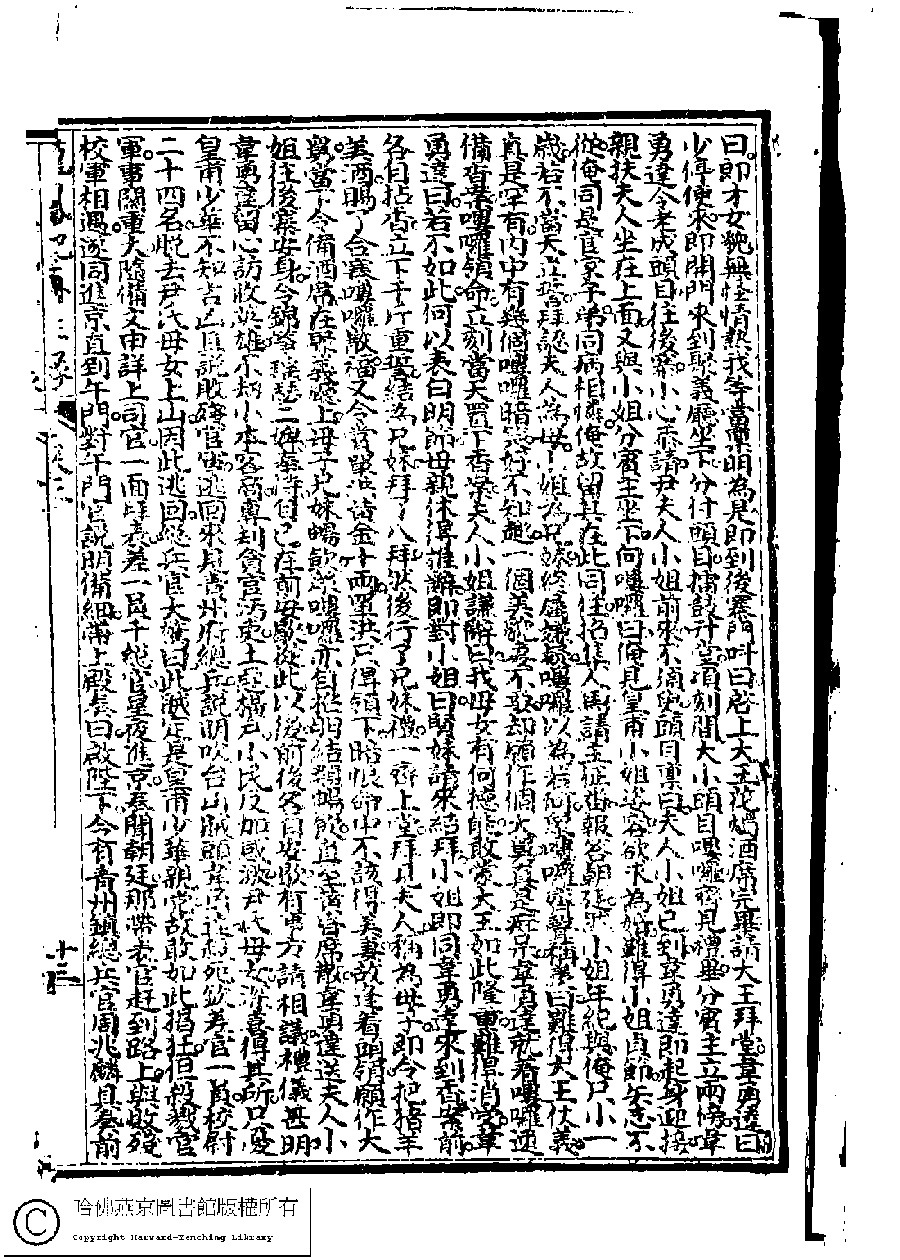 曰即才女貌無怪情熱我等當稟明為是即到後寨門叫曰啓上大王花燭酒席完畢請大王拜堂韋勇達曰
少停便來即開門來到聚義廳坐下分付頭目擂鼓升堂頃刻間大小頭目嘍囉齊見禮畢分賓主立兩傍韋
勇達令老成頭目往後寨小心去請尹夫人小姐前來不須臾頭目稟曰夫人小姐已到韋勇達即起身迎接
親扶夫人坐在上面又與小姐分賓主坐下向嘍囉曰俺見皇甫小姐姿容欲求為婚難得小姐貞節矢志不
從俺同是官家子弟同病相憐俺故留其在此同住招集人馬請主征番報答朝廷小姐年紀與俺只小一
歲若不當天立誓拜認夫人為母小姐為兄妹嘍囉以為難得大王仗義
真是罕有內中有幾個嘍囉暗笑好不知趣一個美貌妻不敢却願作個大舅真是痴呆韋勇達就着嘍囉速
備香案嘍囉領命立刻當天置下香案夫人小姐謙辭曰我母女有何德能敢當大王如此隆重難得消受韋
勇達曰若不如此何以表白明節母親休得推辭即對小姐曰賢妹請來結拜小姐即同韋勇達來到香案前
各自拈香立下千斤重誓結為兄妹拜了八拜然後行了兄妹禮一齊上堂拜見夫人稱為母子即令把猪羊
美酒賜了合寨嘍囉散福又令賞金十兩單洪只得領下暗恨命中不該得美妻故逢着頭領願作大
舅當下令備酒席在聚義廳上母子兄妹暢飲嘍囉亦自暢飲直至席散韋勇達送夫人小
姐往後寨安身令錦瑟瑤琴二婢奉侍自己在前安歇從此以後前後各自安歇有事方請相議禮儀甚明
韋勇達留心訪收英雄不刼小本客商專刼貪官汚吏土惡橫戶小民反加感激尹氏母女喜得其所只憂
皇甫少華不知吉凶且說敗殘官軍逃回來見青州府總兵說明吹台山賊頭韋勇達殺死欽差官一員校尉
二十四名脫去尹氏母女上山因此逃回總兵官大驚曰此賊定是皇甫少華親黨故敢如此猖狂但殺戮官
軍事關重大隨備文申詳上司官一面拜表差一員千總官星夜進京奏聞朝廷那帶表官赶到路上與敗殘
校軍相遇遂同進京直到午門對午門官說明備細帶上殿奏曰啟陛下今有青州鎮總兵官周兆麟具奏前
十三
哈佛燕京圖書館版權所有
Copyright Harvard-Yenching Library